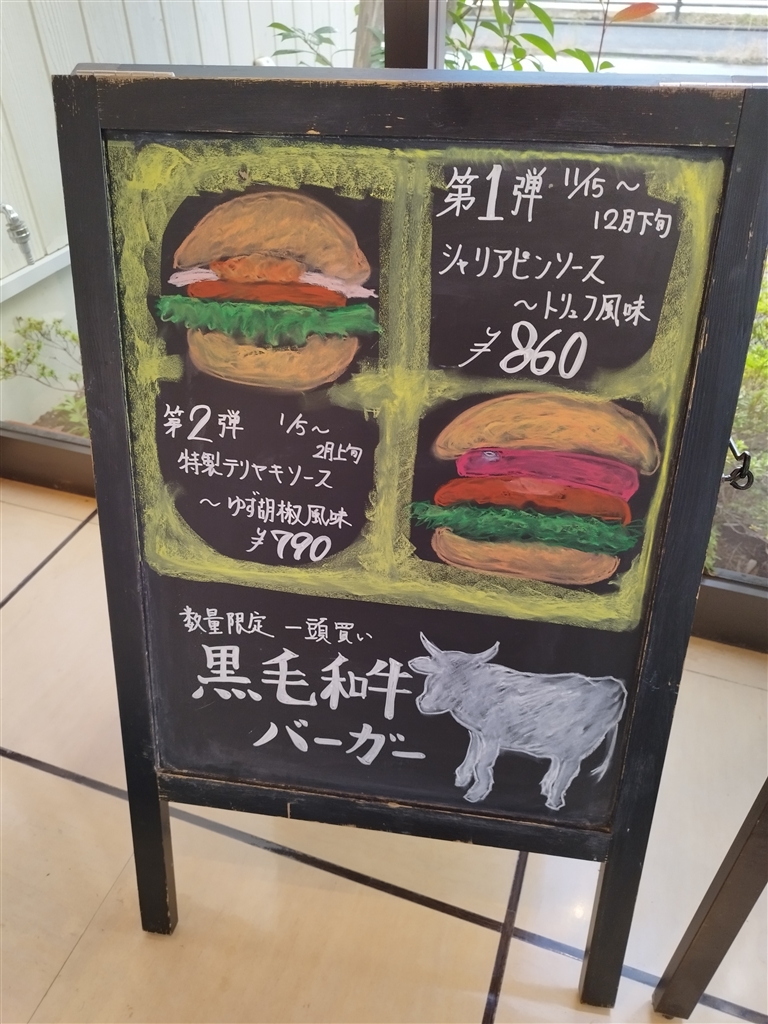 第1弾 11/15〜
12月下旬
シャリアピンソース
〜トリュフ風味
¥860
第2弾 1/5〜
2月上旬
特製テリヤキソース
〜ゆず胡椒風味
¥790
数量限定 一頭買い
黒毛和牛
バーガー